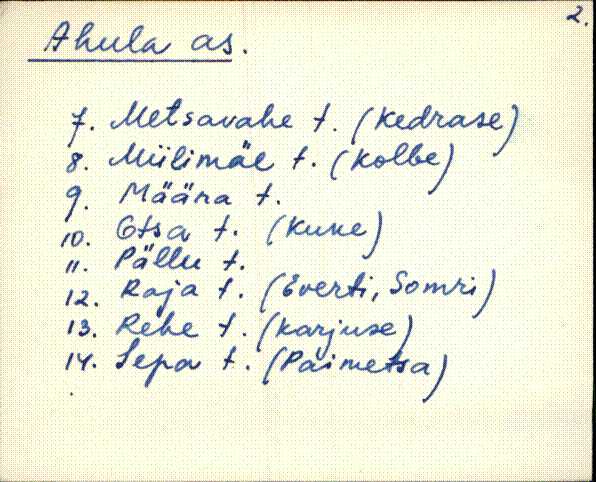 2.
Ahula as.
7. Metsavahe t. (Kedrase)
8. Miilimäe t. (Kolbe)
9. Määra t.
10. Otsa t. (Kuke)
11. Pällu t.
12. Raja t. (Everti, Somri)
13. Rehe t. (Karjuse)
14. Sepa t. (Paimetsa)